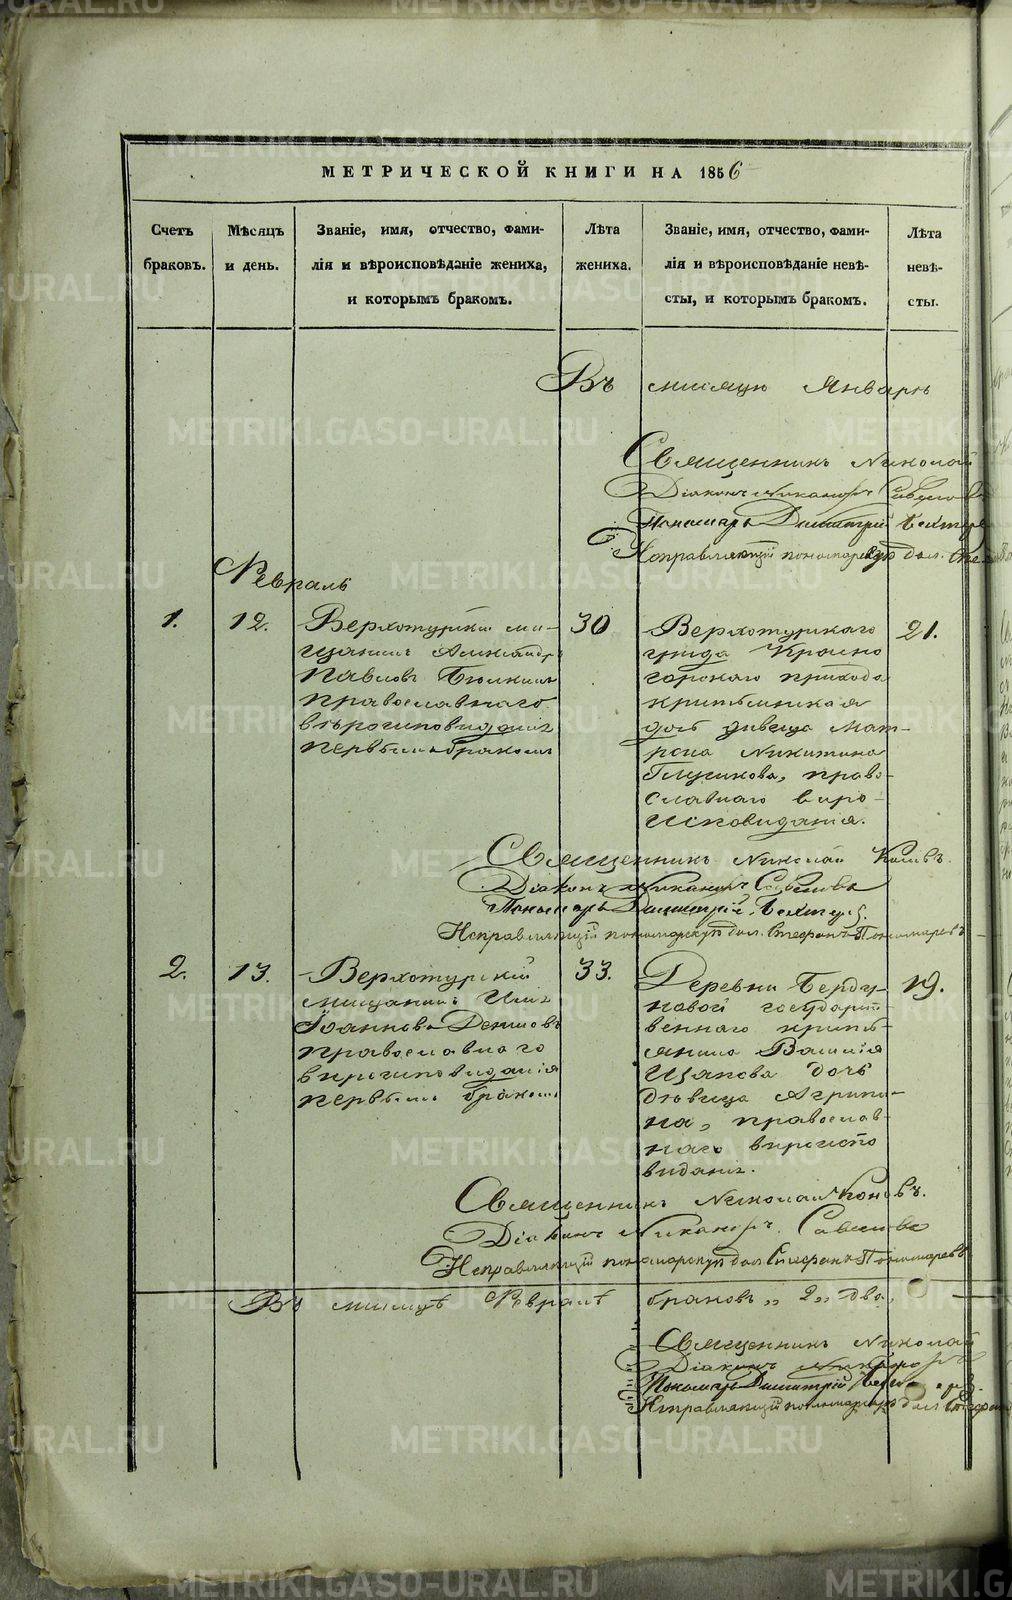 МЕТРИЧЕСКОЙ КНИГИ НА 1856
Счетъ браковъ.
Мѣсяцъ и день.
Званіе, имя, отчество, фами-
лія и вѣроисповѣданіе жениха,
и которымъ бракомъ.
Лѣта жениха.
Званіе, имя, отчество, фами-
лія и вѣроисповѣданіе невѣ-
сты, и которымъ бракомъ.
Лѣта невѣ-
сты.
Въ месяце Январе
Священникъ Николай
Діаконъ Никаноръ
Пономарь Димитрій
Исправляющій пономарскую дол.
Февраль
1.
12.
Верхотурскій ме-
щанинъ Александръ
Павловъ
православнаго
вѣроисповеданія
первымъ бракомъ
30
Верхотурскаго
уезда Красно
горскаго прихода
крестьянская
дочь девица Мат-
рона Никитина
Глушкова, право-
славнаго веро-
исповеданія.
21.
Священникъ Николай
Діаконъ Никаноръ
Пономарь Димитрій
Исправляющій пономарскую дол. Стефанъ Пономаревъ
2.
13.
Верхотурскій
мещанинъ Илія
Іоанновъ Денисовъ
православнаго
вероисповеданія
первымъ бракомъ
33.
Деревни Берду-
новой государст
веннаго кресть-
янина Василія
дочь
девица Агрипи-
на, православ-
наго вероиспо
веданія.
19.
Священникъ Николай
Діаконъ Никаноръ
Исправляющій пономарскую дол. Стефанъ Пономаревъ
Въ месяцѣ Февралѣ браковъ „2„ два,
Священникъ Николай
Діаконъ Никаноръ
Пономарь Димитрій
Исправляющій пономарскую дол. Стефанъ
METRIKI.GASO-URAL.RU